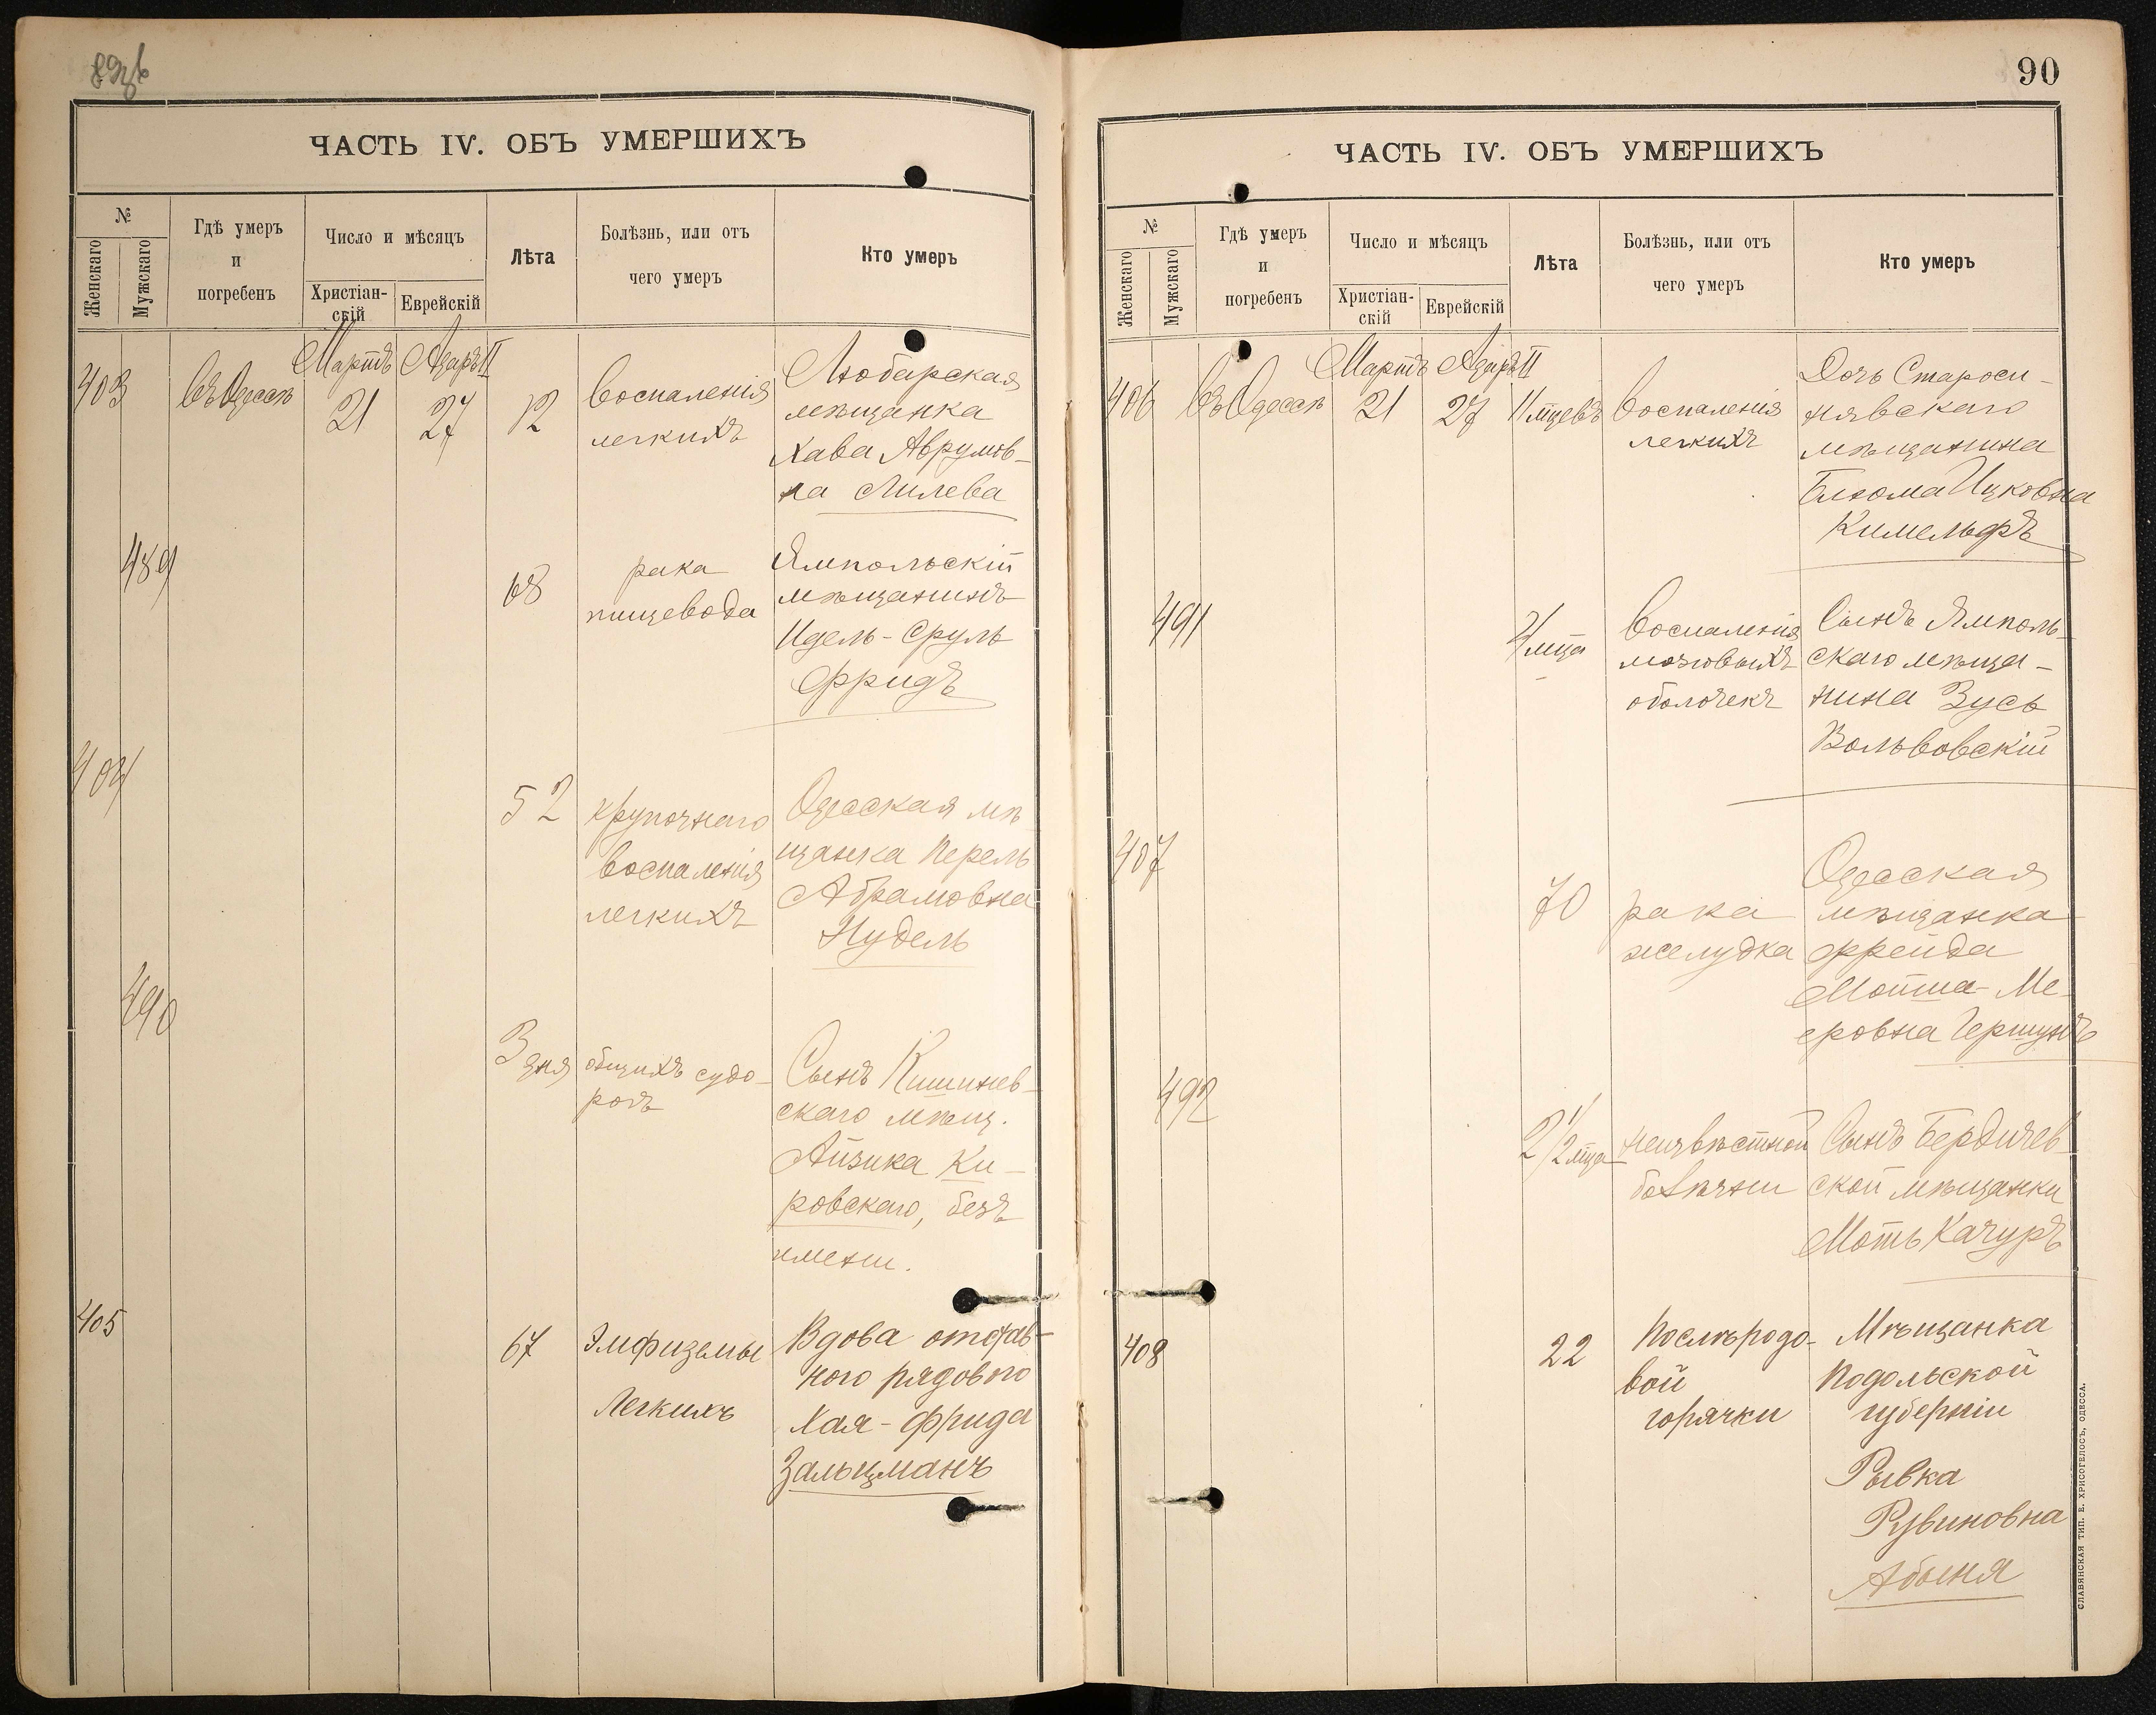 ЧАСТЬ IV. ОБЪ УМЕРШИХЪ
№
Женскаго
Мужскаго
Гдѣ умеръ
и
погребенъ
Число и мѣсяцъ
Христіан-
скій
Еврейскій
Лѣта
Болѣзнь, или отъ
чего умеръ
Кто умеръ
Мартъ Адаръ II
403 въ Одессѣ 21 27 12
воспаленія
легкихъ
Любарская
мѣщанка
Хава Аврумов-
на Лилева
489
68
рака
пищевода
Ямпольскій
мѣщанинъ
Идель-Сруль
Фридъ
404
52
крупознаго
воспаленія
легкихъ
Одесская мѣ
щанка Перель
Абрамовна
Нудель
490
3 дня
общихъ судо-
рогъ
Сынъ Кишинев-
скаго мѣщ.
Айзика Ки-
ровскаго, безъ
имени.
405
67
Эмфиземы
Легкихъ
Вдова отстав-
ного рядового
Хая-Фрида
Зальцманъ
90
ЧАСТЬ IV. ОБЪ УМЕРШИХЪ
№
Женскаго
Мужскаго
Гдѣ умеръ
и
погребенъ
Число и мѣсяцъ
Христіан-
скій
Еврейскій
Лѣта
Болѣзнь, или отъ
чего умеръ
Кто умеръ
Мартъ Адаръ II
406 въ Одессѣ 21 27 11 мцевъ
воспаленія
легкихъ
Дочь Староси-
нявскаго
мѣщанина
Блюма Ицковна
Кимельфъ
491
4 мца
воспаленія
мозговыхъ
оболочекъ
Сынъ Ямполь-
скаго мѣща-
нина Зусь
Вольвовскій
407
70
рака
желудка
Одесская
мѣщанка
Фрейда
Мойша-Ме-
еровна Гершунъ
492
2 1/2 мца
неизвѣстной
болѣзни
Сынъ Бердичев-
ской мѣщанки
Моть Качуръ
408
22
Послѣродо-
вой
горячки
Мѣщанка
Подольской
губерніи
Рывка
Рувиновна
Абыня
СЛАВЯНСКАЯ ТИП. Е. ХРИСОГЕЛОСЪ, ОДЕССА.